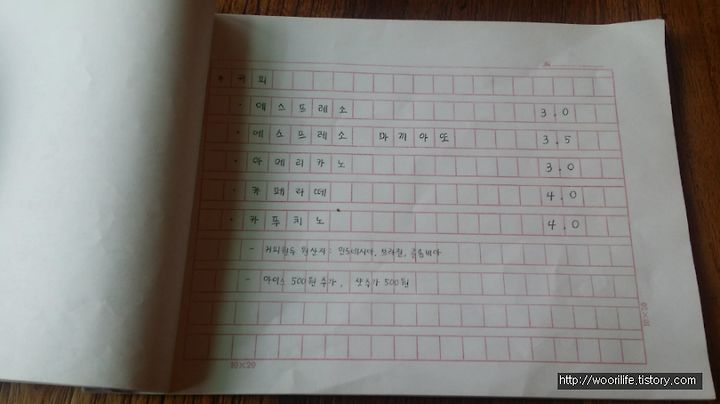 * 커피
· 에스프레소 3.0
· 에스프레소 마끼아또 3.5
· 아메리카노 3.0
· 카페라떼 4.0
· 카푸치노 4.0
- 커피원두 원산지 : 인도네시아, 브라질, 콜롬비아
- 아이스 500원 추가, 샷추가 500원
10×20
10×20
http://woorilife.tistory.com